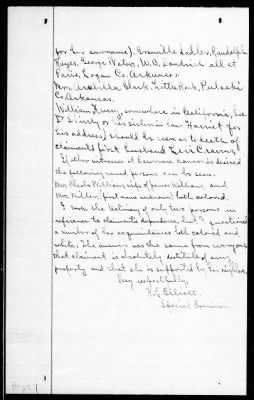 for her surname), Granville Sadler, Randolph
Hayes, George Waters, W.B. Dandrich all at
Paris, Logan Co. Arkansas.
Mrs. Arabella Clark, Little Rock, Pulaski
Co. Arkansas.
William, somewhere in California, (see
Dr. Shirly or his sister in law Harriet for
his address) should be seen as to death of
claimant's first husband Levi Cravens.
If other witnesses at Kansas is desired
the following named persons can be seen.
Mrs. Phoebe Williams wife of James Williams, and
Mrs. Miller (first name unknown) both colored.
I took the testimony of only two persons in
reference to claimant's dependence, but I questioned
a number of her acquaintances both colored and
white. The answer was the same from everyone
that claimant is absolutely destitute of any
property and that she is supported by her neighbors.
Very respectfully,
Elliott.
Special Examiner.
Page 7